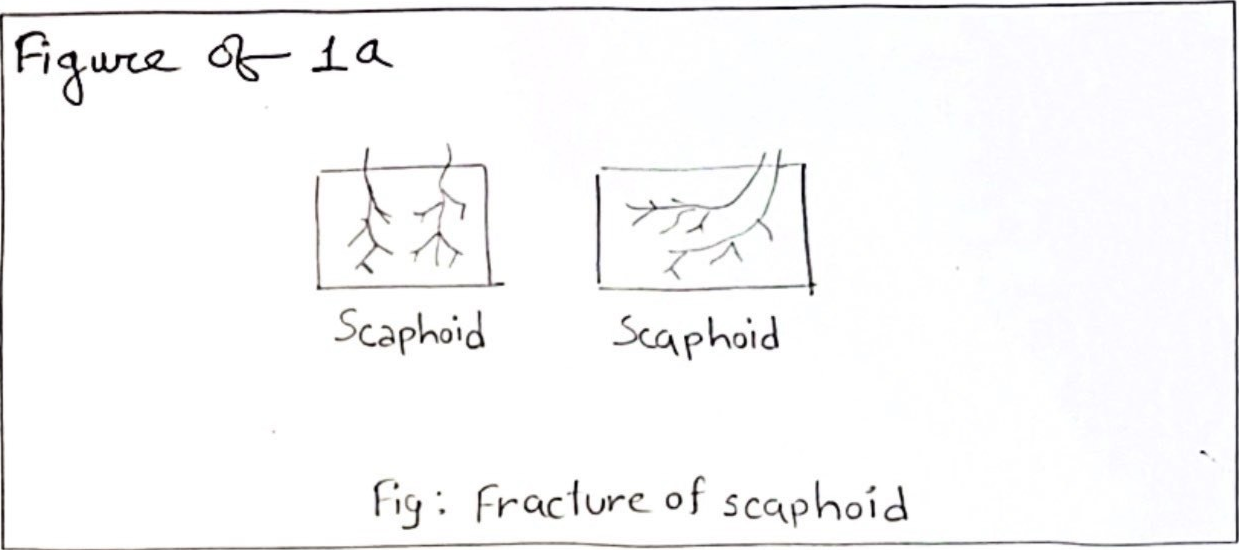 Figure of 1a
Scaphoid Scaphoid
Fig: Fracture of scaphoid